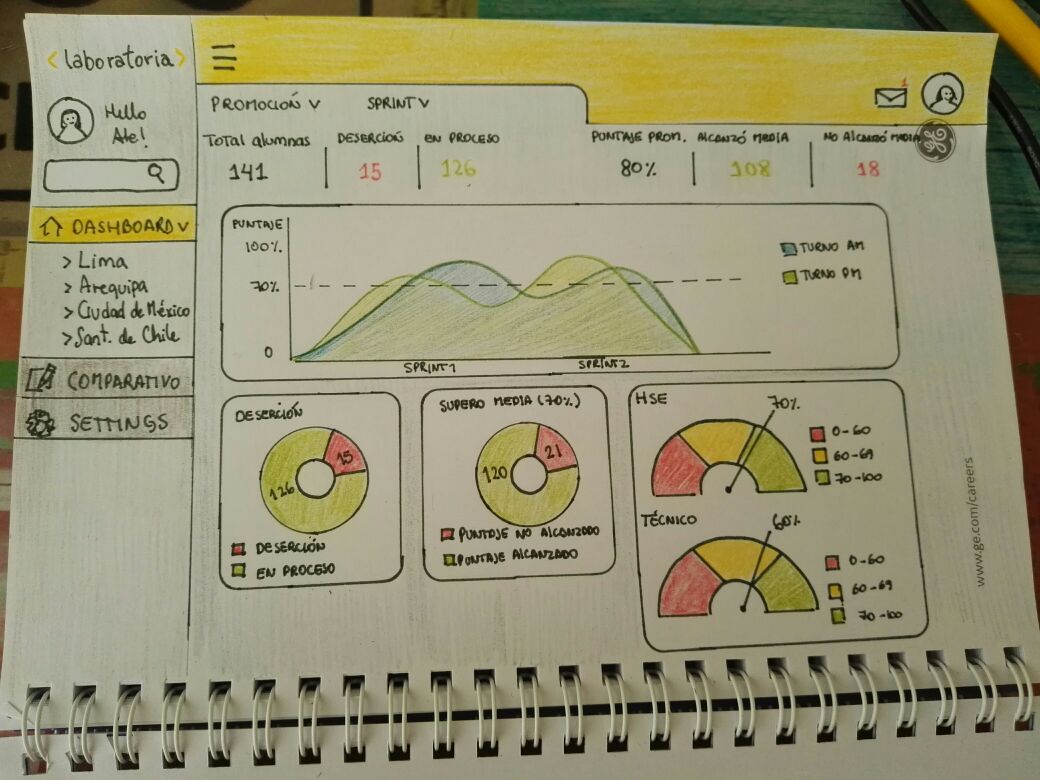 <laboratoria>
Hello
Ale!
DASHBOARD V
> Lima
> Arequipa
> Ciudad de México
> Sant. de Chile
COMPARATIVO
SETTINGS
1
PROMOCIÓN V SPRINT V
Total alumnas DESERCIÓN EN PROCESO PUNTAJE PROM. ALCANZÓ MEDIA NO ALCANZÓ MEDIA
141 15 126 80% 108 18
PUNTAJE
100%
70%
0
SPRINT 1 SPRINT 2
TURNO AM
TURNO PM
DESERCIÓN
15
126
DESERCIÓN
EN PROCESO
SUPERO MEDIA (70%)
21
120
PUNTAJE NO ALCANZADO
PUNTAJE ALCANZADO
HSE
70%
0-60
60-69
70-100
TÉCNICO
60%
0-60
60-69
70-100
www.ge.com/careers